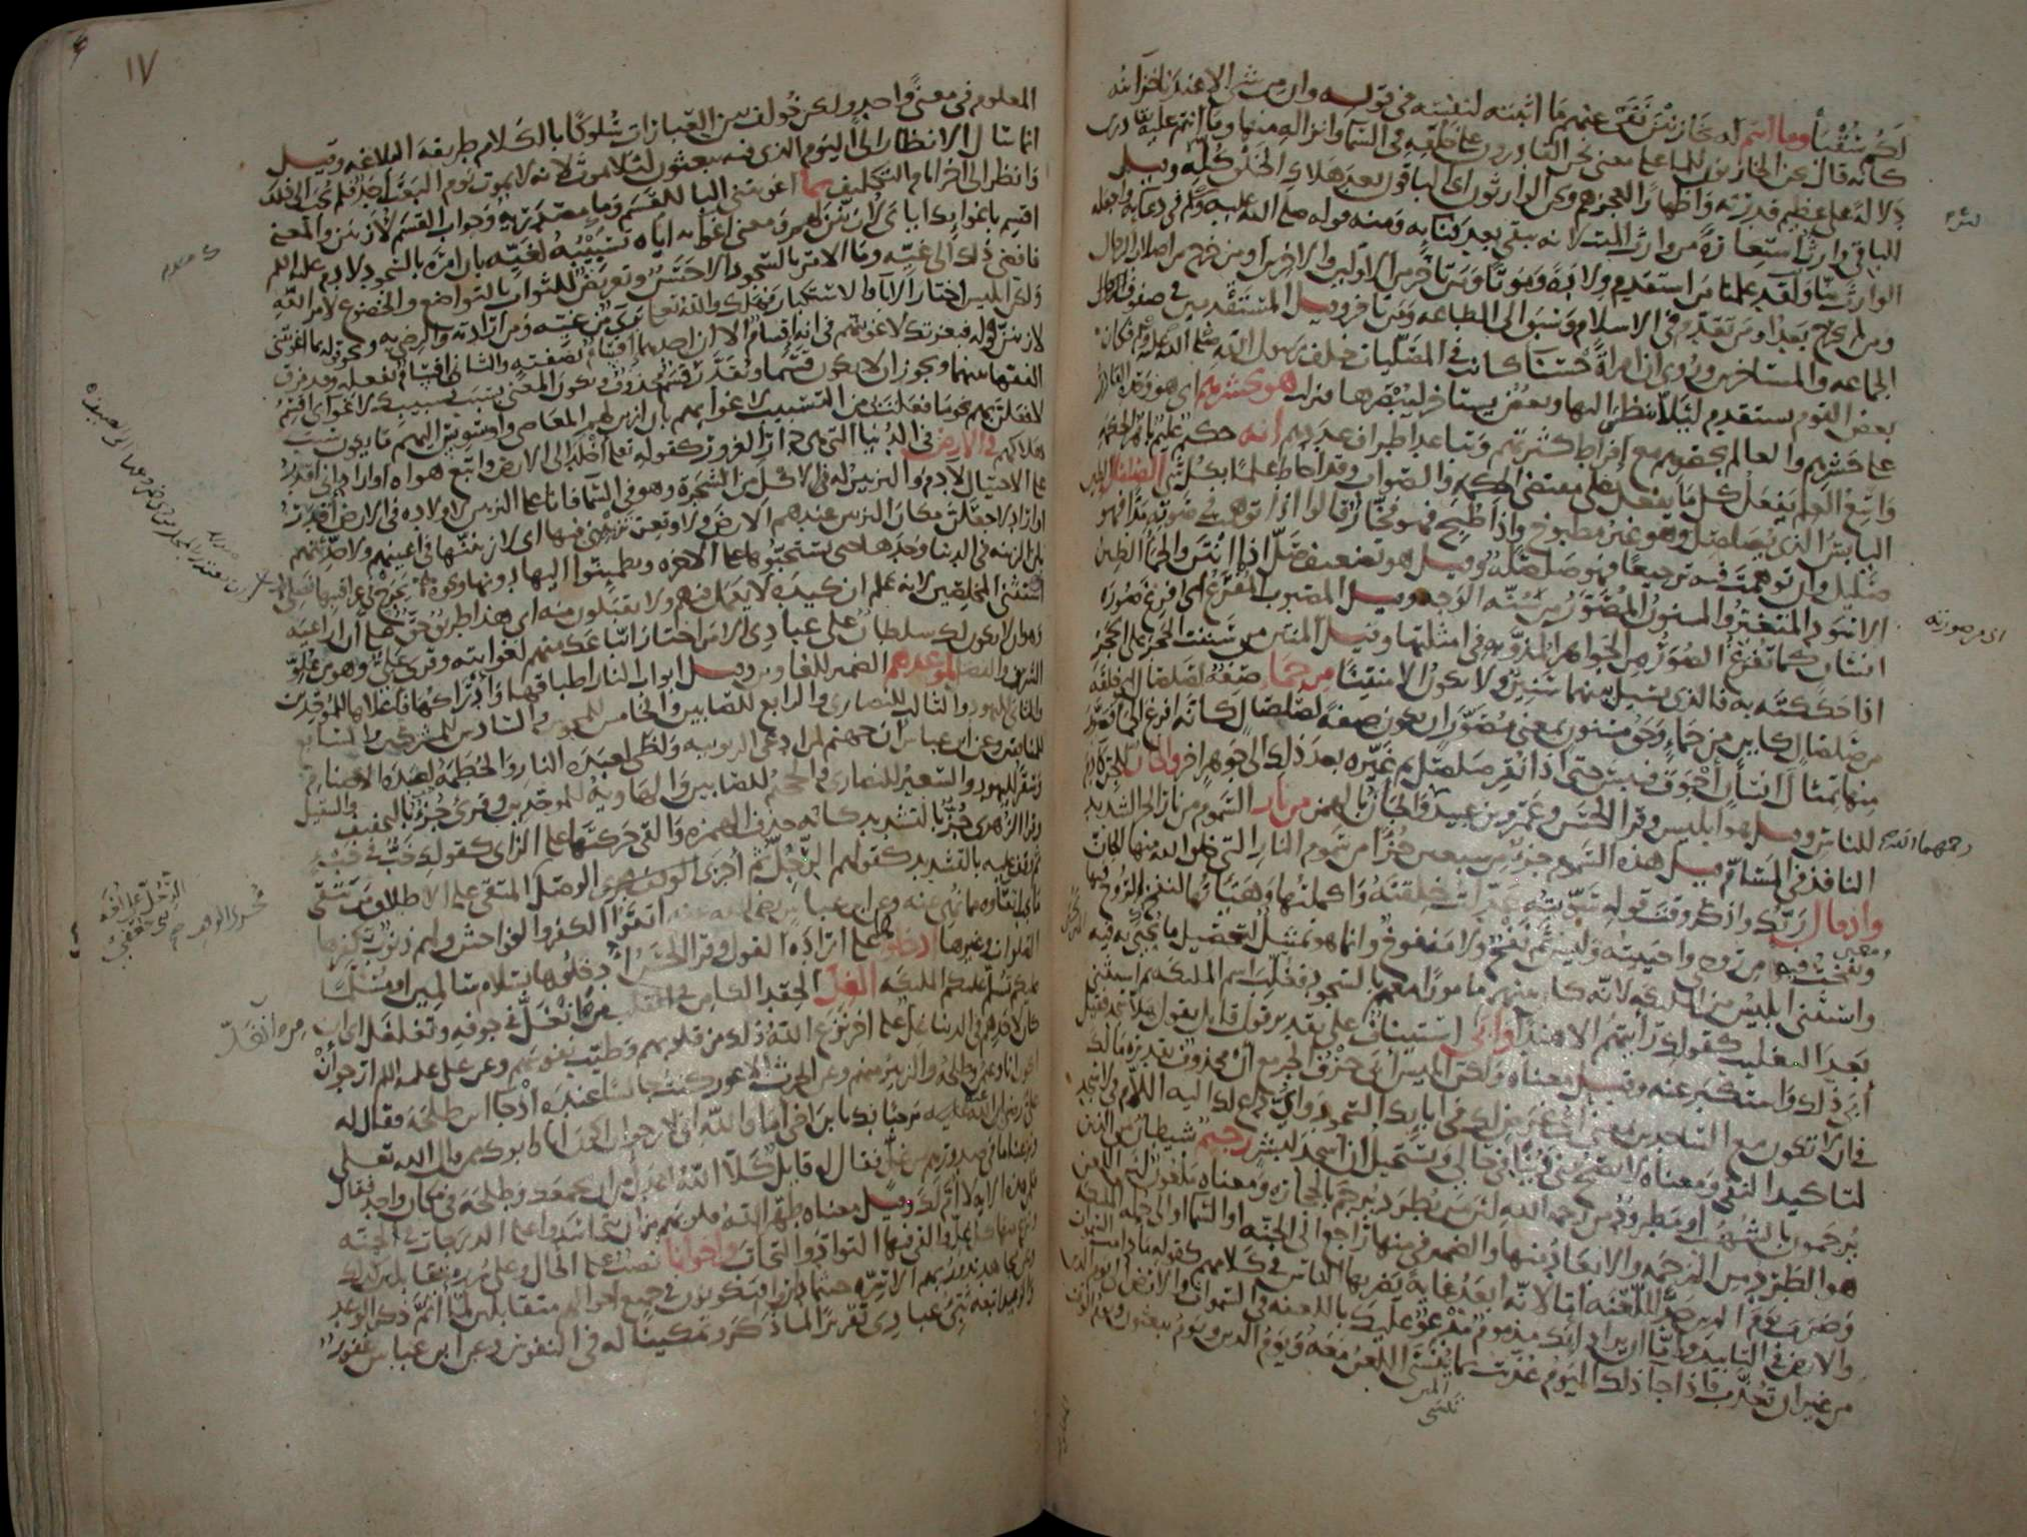 لكم سُقْيَا وما انتم له بخازنين نَفَى عنهم ما اثبته لنفسه في قوله وان من شي الا عندنا خزاينه
كانه قال نحن الخازنون للماء على معنى نحن القادرون على خلقه في السماء وانزاله منها وما انتم عليه بقادرين
دلالةً على عظيم قدرته واظهارًا لعجزهم ونحن الوارثون اي الباقون بعد هلاك الخلق كله وقيل
للباقي وارث استعارةً من وارث الميت لانه يبقى بعد فنايه ومنه قوله صلى الله عليه وسلم في دعايه واجعله
الوارث منّا ولقد علمنا من استقدم ولادةً وموتًا ومن تاخر من الاولين والاخرين او من خرج من اصلاب الرجال
ومن لم يخرج بعد او من تقدم في الاسلام وسبق الى الطاعه ومن تاخر وقيل المستقدمين في صفوف
الجماعه والمستاخرين وروي ان امراةً حسنآ كانت في المصلّيات خلف رسول الله صلى الله عليه وسلم فكان
بعض القوم يستقدم ليلا ينظر اليها وبعضٌ يستاخر ليبصرها فنزلت هو يحشرهم اي هو وحده القادر
على حشرهم والعالم بحصرهم مع افراط كثرتهم وتباعد اطراف عددهم انه حكيم عليم باهر الحكمه
واسع العلم يفعل كل ما يفعل على مقتضى الحكمه والصواب وقد احاط علمًا بكل شي الصلصال الطين
اليابس الذي يصلصل وهو غير مطبوخ واذا طبخ فهو فخّار قالوا اذا توهمت في صوته مدًّا فهو
صَليل وان توهمت فيه ترجيعًا فهو صَلصلة وقيل هو تضعيف صلّ اذا انتن والحمأ الطين
الاسود المتغير والمسنون المصوّر من سنّة الوجه وقيل المصبوب المفرغ اي افرغ صورة
انسان كما تفرغ الصُوَر من الجواهر المذوّبة في امثلتها وقيل المنتن من سننت الحجر على الحجر
اذا حككته به فالذي يسيل بينهما سنين ولا يكون الا منتنًا من حمأ صفة لصلصال اي خلقه
من صلصال كاين من حماءٍ وحق مسنون بمعنى مصوّر ان يكون صفة لصلصال كانه افرغ الحمأ فصوّر
منها تمثال انسان اجوف فيبس حتى اذا نقر صلصل ثم غيّره بعد ذلك الى جوهر اخر والجان للجن كادم
للناس وقيل هو ابليس وقرا الحسن وعمرو بن عبيد والجأن بالهمز من نار السموم من نار الحر الشديد
النافذ في المسام قيل هذه السموم جزء من سبعين جزءًا من سموم النار التي خلق الله منها الجان
واذ قال ربك واذكر وقت قوله سوّيته عدّلت خلقته واكملتها وهيّأتها لنفخ الروح فيها
ومعنى ونفخت فيه من روحي واحييته وليس ثم نفخ ولا منفوخ وانما هو تمثيل لتحصيل ما يحيى به فيه
واستثنى ابليس من الملايكه لانه كان بينهم مامورًا معهم بالسجود فغلب اسم الملايكه ثم استثني
بعد التغليب كقولك رايتهم الا هندًا وابى استيناف على تقدير قول قايل يقول هلا سجد فقيل
ابى ذلك واستكبر عنه وقيل معناه ولكن ابليس ابى حرف الجر مع أن محذوف تقديره مالك
في ان لا تكون مع الساجدين بمعنى اي غرض لك في ابايك السجود واي داعٍ لك اليه اللام في لاسجد
لتاكيد النفي ومعناه لا يصح مني وينافي حالي ويستحيل ان اسجد لبشر رجيم شيطان من الذين
يرجمون بالشهب او مطرود من رحمة الله لان من يطرد يرجم بالحجارة ومعناه ملعون لان اللعن
هو الطرد من الرحمه والابعاد منها والضمير في منها راجع الى الجنه او السماء او الى جملة الملايكه
وضرب يوم الدين حدًّا للّعنة اما لانه ابعد غاية يضربها الناس في كلامهم كقوله ما دامت السموات
والارض في التابيد واما ان يراد انك مذموم مدعوّ عليك باللعنه في السموات والارض الى يوم الدين
من غير ان تعذب فاذا جا ذلك اليوم عُذّبت بما يُنسَى اللعن معه ويوم الدين ويوم يبعثون ويوم الوقت
رحمهما الله
اي من صورته
١٧
المعلوم في معنى واحد ولكن خولف بين العبارات سلوكًا بالكلام طريقة البلاغه وقيل
انما سال الانظار الى اليوم الذي فيه يبعثون ليلا يموت لانه لا يموت يوم البعث احد فلم يجب الى ذلك
وانظر الى اخر ايام التكليف بما اغويتني البا للقسم وما مصدرية وجواب القسم لازينن والمعنى
اقسم باغوايك اياي لازينن لهم ومعنى اغوايه اياه تسبيبه لغيّه بان امره بالسجود لادم عليه السلم
فافضى ذلك الى غيّه وما الامر بالسجود الا حسن وتعريض للثواب بالتواضع والخضوع لامر الله
ولكن ابليس اختار الابا والاستكبار فهلك والله تعالى بريء من غيّه ومن ارادته والرضى به ونحو قوله بما اغويتني
لازينن قوله فبعزتك لاغوينهم في انه اقسام الا ان احدهما اقسام بصفته والثاني اقسام بفعله وقد فرق
الفقها بينهما ويجوز ان لا يكون قسمًا ويقدّر قسم محذوف ويكون المعنى بسبب تسبيبك لاغواي اقسم
لافعلن بهم نحو ما فعلت بي من التسبيب لاغوايهم بان ازين لهم المعاصي واوسوس اليهم ما يكون سبب
هلاكهم في الارض في الدنيا التي هي دار الغرور كقوله تعالى اخلد الى الارض واتبع هواه او اراد اني اقدر
على الاحتيال لادم والتزيين له في الاكل من الشجرة وهو في السما فانا على التزيين لاولاده في الارض اقدر
او اراد لاجعلن مكان التزيين عندهم الارض ولاوقعن تزييني فيها اي لازيننها في اعينهم ولاحدثنهم
بان الزينه في الدنيا وحدها حتى يستحبوها على الاخره ويطمينوا اليها دونها ونحوه يجرح في عراقيبها نصلي
استثنى المخلصين لانه علم ان كيده لا يعمل فيهم ولا يقبلون منه اي هذا طريق حق علي ان اراعيه
وهو ان لا يكون لك سلطان على عبادي الا من اختار اتباعك منهم لغوايته وقرئ عليٌّ وهو من علوّ
الشرف والفضل لموعدهم الضمير للغاوين وقيل ابواب النار اطباقها وادراكها فاعلاها للموحدين
والثاني لليهود والثالث للنصارى والرابع للصابين والخامس للمجوس والسادس للمشركين والسابع
للمنافقين وعن ابن عباس ان جهنم لمن ادعى الربوبيه ولظى لعبدة النار والحطمة لعبدة الاصنام
وسقر لليهود والسعير للنصارى والجحيم للصابين والهاوية للموحدين وقرئ جزء بالتخفيف والتثقيل
وقرا الزهري جُزٌّ بالتشديد كانه حذف الهمزه والقى حركتها على الزاي كقولك خبٌ في خبءٍ
ثم وقف عليه بالتشديد كقولهم الرجلّ ثم اجرى الوصل مجرى الوقف المتقي على الاطلاق من يتقي
ما يجب اتقاوه مما نهي عنه وعن ابن عباس رضي الله عنه اتقوا الكفر والفواحش ولهم ذنوب تكفرها
الصلوات وغيرها ادخلوها على ارادة القول وقرا الحسن اُدخِلوها بسلام سالمين او مسلّمًا
عليكم تسلم عليكم الملايكه الغل الحقد الكامن في القلب من انغلّ في جوفه وتغلغل اي ان
كان لاحدهم في الدنيا غل على اخر نزع الله ذلك من قلوبهم وطيّب نفوسهم وعن علي عليه السلم ارجو ان
اكون انا وعثمن وطلحة والزبير منهم وعن الحرث الاعور كنت جالسًا عنده اذ جا ابن طلحة فقال له
علي رضي الله عنه مرحبًا بك يا بن اخي اما والله اني لارجو ان اكون انا وابوك ممن قال الله تعلى
ونزعنا ما في صدورهم من غل فقال له قايل كلّا الله اعدل من ان يجمعك وطلحة في مكان واحد فقال
فلمن هذه الاية لا ام لك وقيل معناه طهّر الله قلوبهم من ان يتحاسدوا على الدرجات في الجنه
ونزع منها كل غل والقى فيها التوادّ والتحابّ واخوانا نصب على الحال وعلى سرر متقابلين كذلك
وعن مجاهد تدور بهم الاسرّه حيثما داروا فيكونون في جميع احوالهم متقابلين لمّا اتمّ ذكر الوعد
والوعيد اتبعه نبئ عبادي تقريرًا لما ذكر وتمكينًا له في النفوس وعن ابن عباس غفور